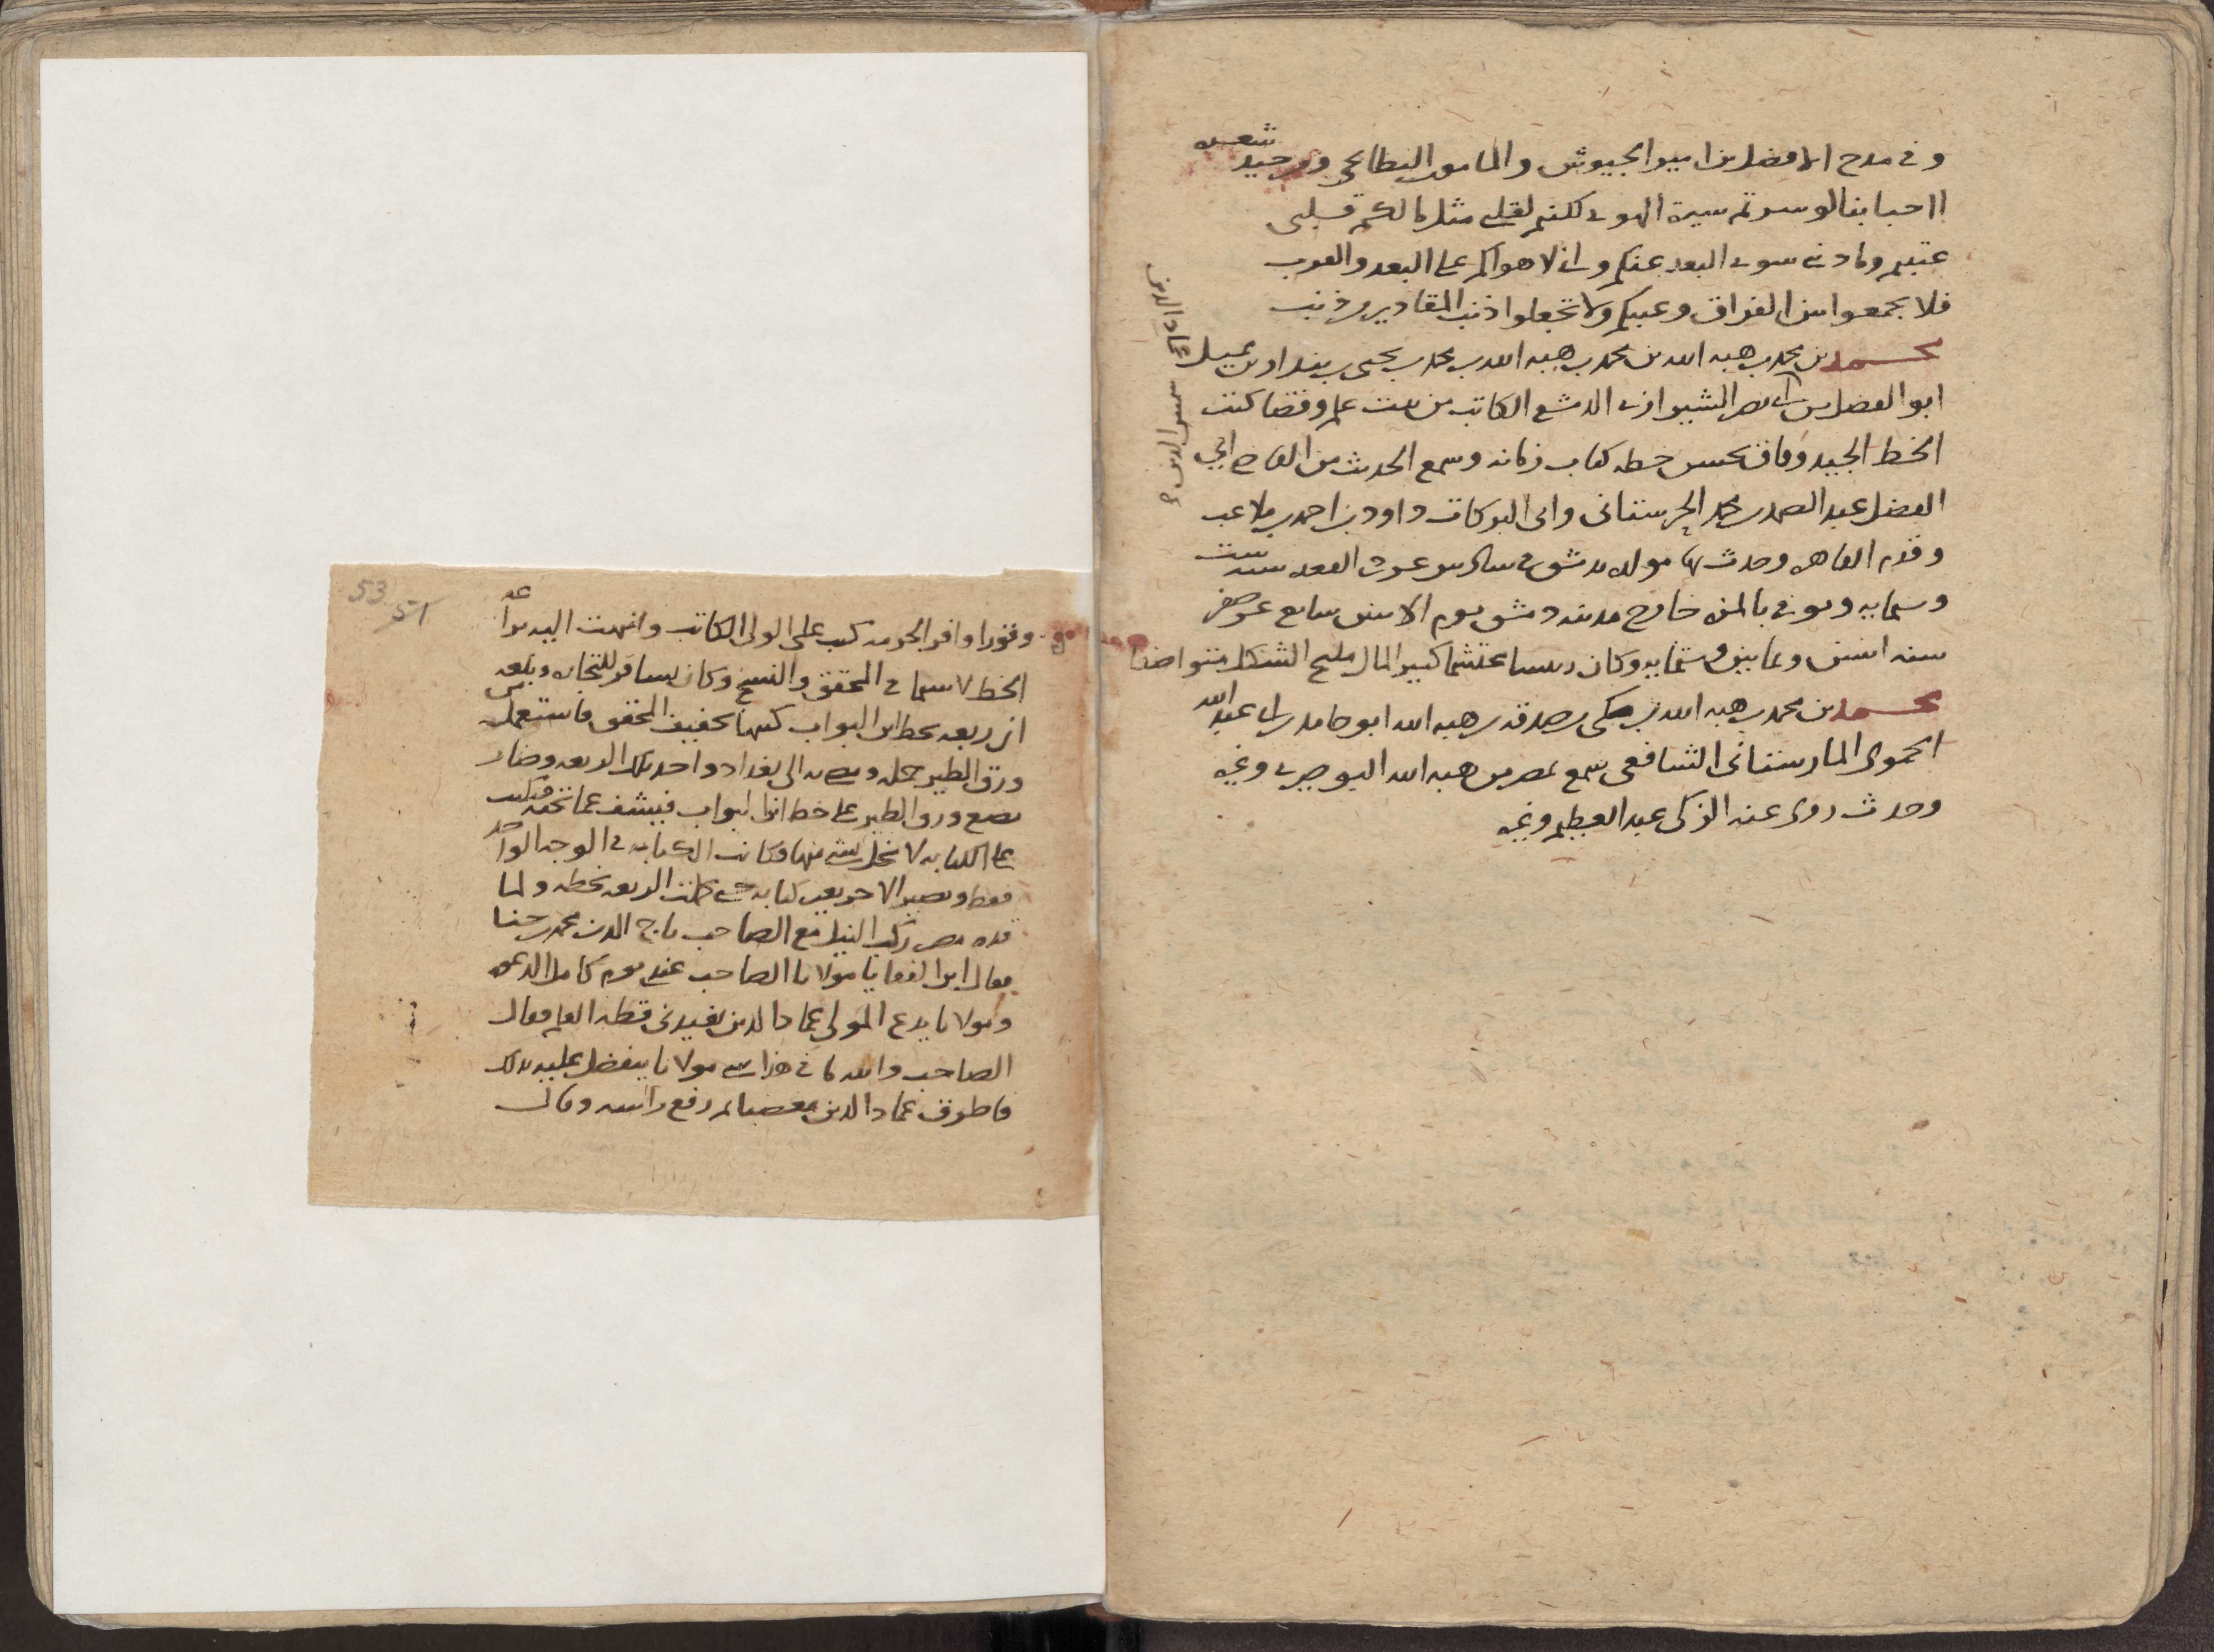 وفى مدح الافضل بن امير الجيوش والمامون البطائحي ومن جيد شعره
ااحبابنا لو سرتم سيرة الهوى لكنتم لقلبى مثل ما لكم قلبى
عتبتم وما ذنبى سوى البعد عنكم وانى لاهواكم على البعد والقرب
فلا تجمعوا بين الفراق وعتبكم ولا تجعلوا ذنب المقادير من ذنب
محمد بن محمد بن هبه الله بن محمد بن هبه الله بن محمد بن يحيى بن بندار بن مميل
عماد الدين
ابو الفضل بن ابى نصر الشيرازى الدمشقى الكاتب من بيت علم وقضا كتب
الخط الجيد وفاق بحسن خطه كتاب زمانه وسمع الحديث من القاضى ابي
الفضل عبد الصمد بن محمد الحرستانى وابى البركات داود بن احمد بن ملاعب
وقدم القاهره وحدث بها مولده بدمشق فى سادس عشرى القعده سنه ست
وستمايه وتوفى بالمزه خارج مدينه دمشق يوم الاثنين سابع عشر صفر
سنه اثنتين وثمانين وستمايه وكان رئيسا محتشما كبير المال مليح الشكل متواضعا
محمد بن محمد بن هبه الله بن مكى بن صدقه بن هبه الله ابو حامد بن ابى عبد الله
الحموى المارستانى الشافعى سمع بمصر من هبه الله البوصيرى وغيره
وحدث روى عنه الزكى عبد العظيم وغيره
53
وقورا وافر الحرمه كتب على الولى الكاتب وانتهت اليه براعه
الخط لا سيما فى المحقق والنسخ وكان يسافر للتجاره وبلغه
ان ربعه بخط ابن البواب كتبها بخفيف المحقق فاستعمل
ورق الطير حمله ومضى به الى بغداد واخذ تلك الربعه وصار
يضع ورق الطير على خط ابن البواب فيشف عما تحته فيكتب
على الكتابه لا يخل بشى منها وكانت الكتابه فى الوجه الواحد
فقط ويصير الاخر بغير كتابه حتى كملت الربعه بخطه ولما
قدم مصر ركب النيل مع الصاحب تاج الدين محمد بن حنا
فقال ابن الفقاعى يا مولانا الصاحب
ومولانا يدع المولى عماد الدين يفيدنى قطه القلم فقال
الصاحب والله ما فى هذا شى مولانا يتفضل عليه بذلك
فاطرق عماد الدين مغضبا ثم رفع راسه وقال